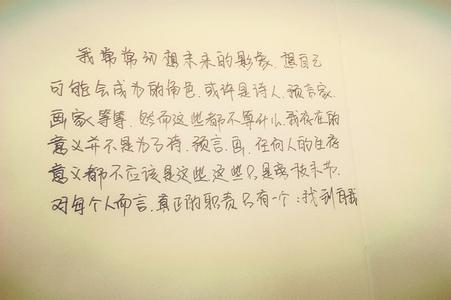 我常常幻想未来的影像,想自己
可能会成为的角色.或许是诗人.预言家.
画家等等.然而这些都不算什么.我存在的
意义并不是为了诗.预言.画.任何人的生存
意义都不应该是这些.这些只是旁枝末节.
对每个人而言.真正的职责只有一个:找到自我